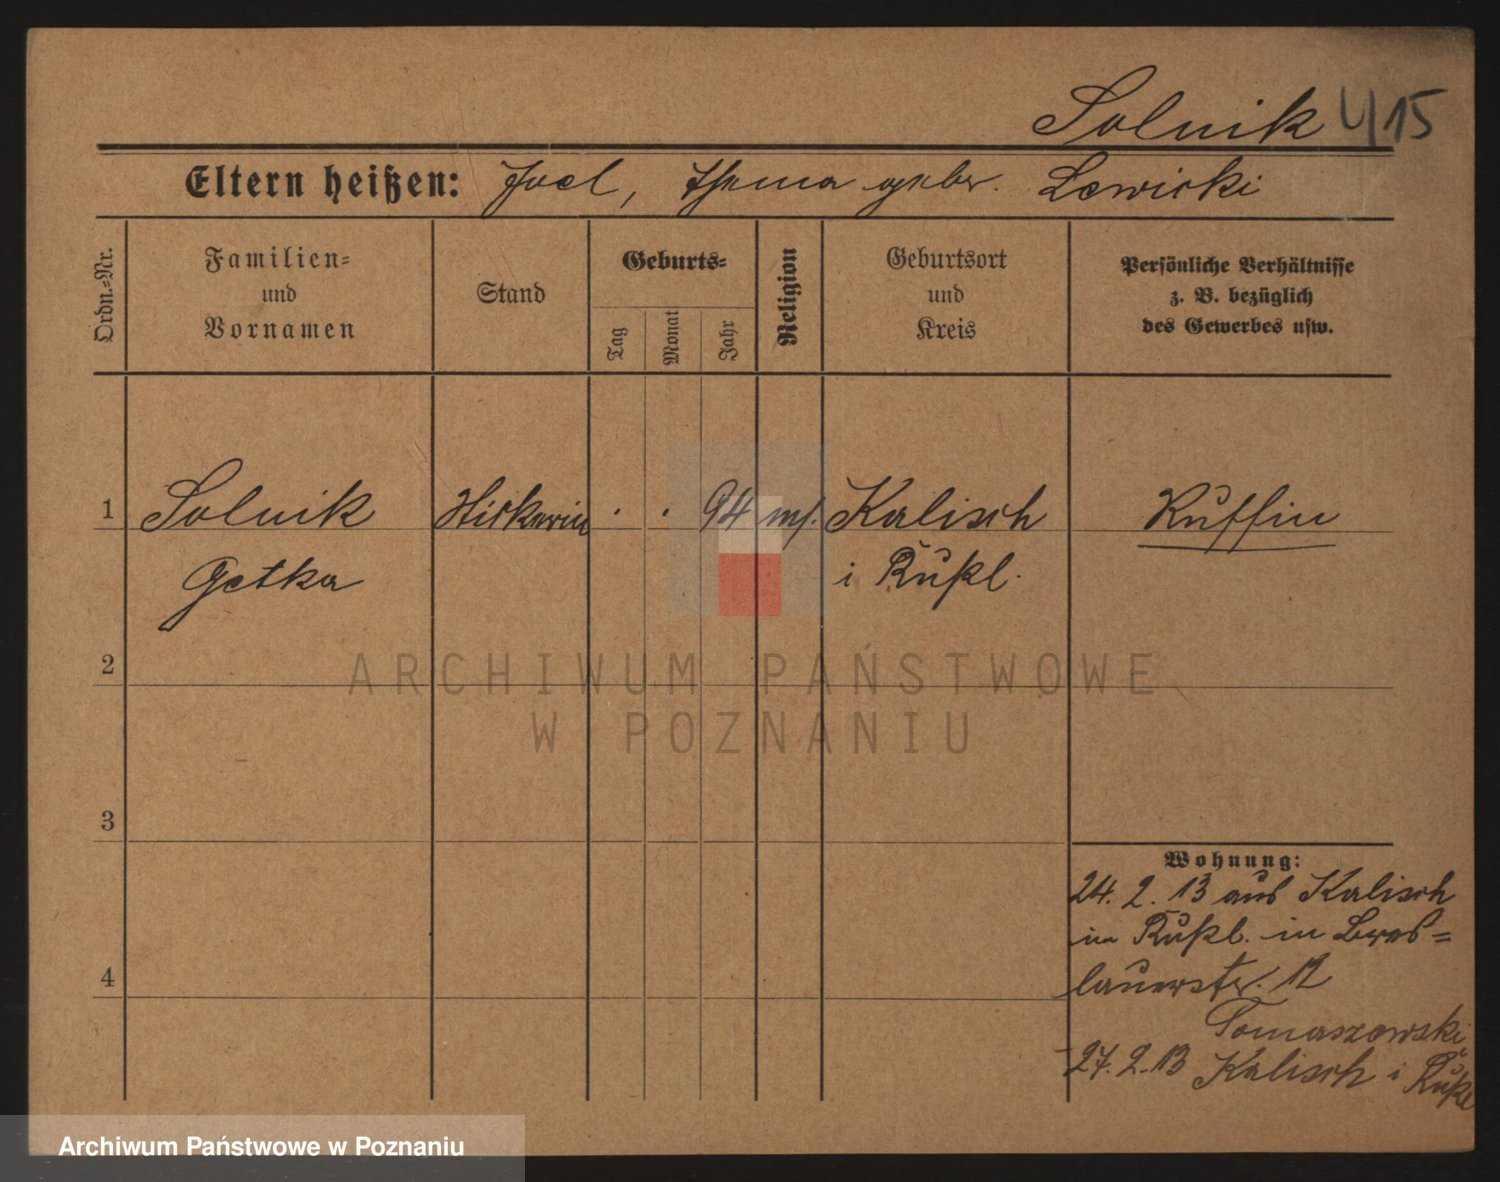 Solnik 415
Eltern heißen: Joel, geber. Lewicki
Ordn.-Nr.
Familien=
und
Vornamen
Stand
Geburts=
Tag
Monat
Jahr
Religion
Geburtsort
und
Kreis
Persönliche Verhältnisse
z. B. bezüglich
des Gewerbes usw.
1 Solnik . . 94 mos. Kalisch Russin
Getka i Rußl.
2
ARCHIWUM PAŃSTWOWE
W POZNANIU
3
Wohnung:
24. 2. 13 aus Kalisch
in Rußl. in Bres=
4
lauerstr. 12
Tomaszewski
27. 2. 13 Kalisch i Rußl
Archiwum Państwowe w Poznaniu